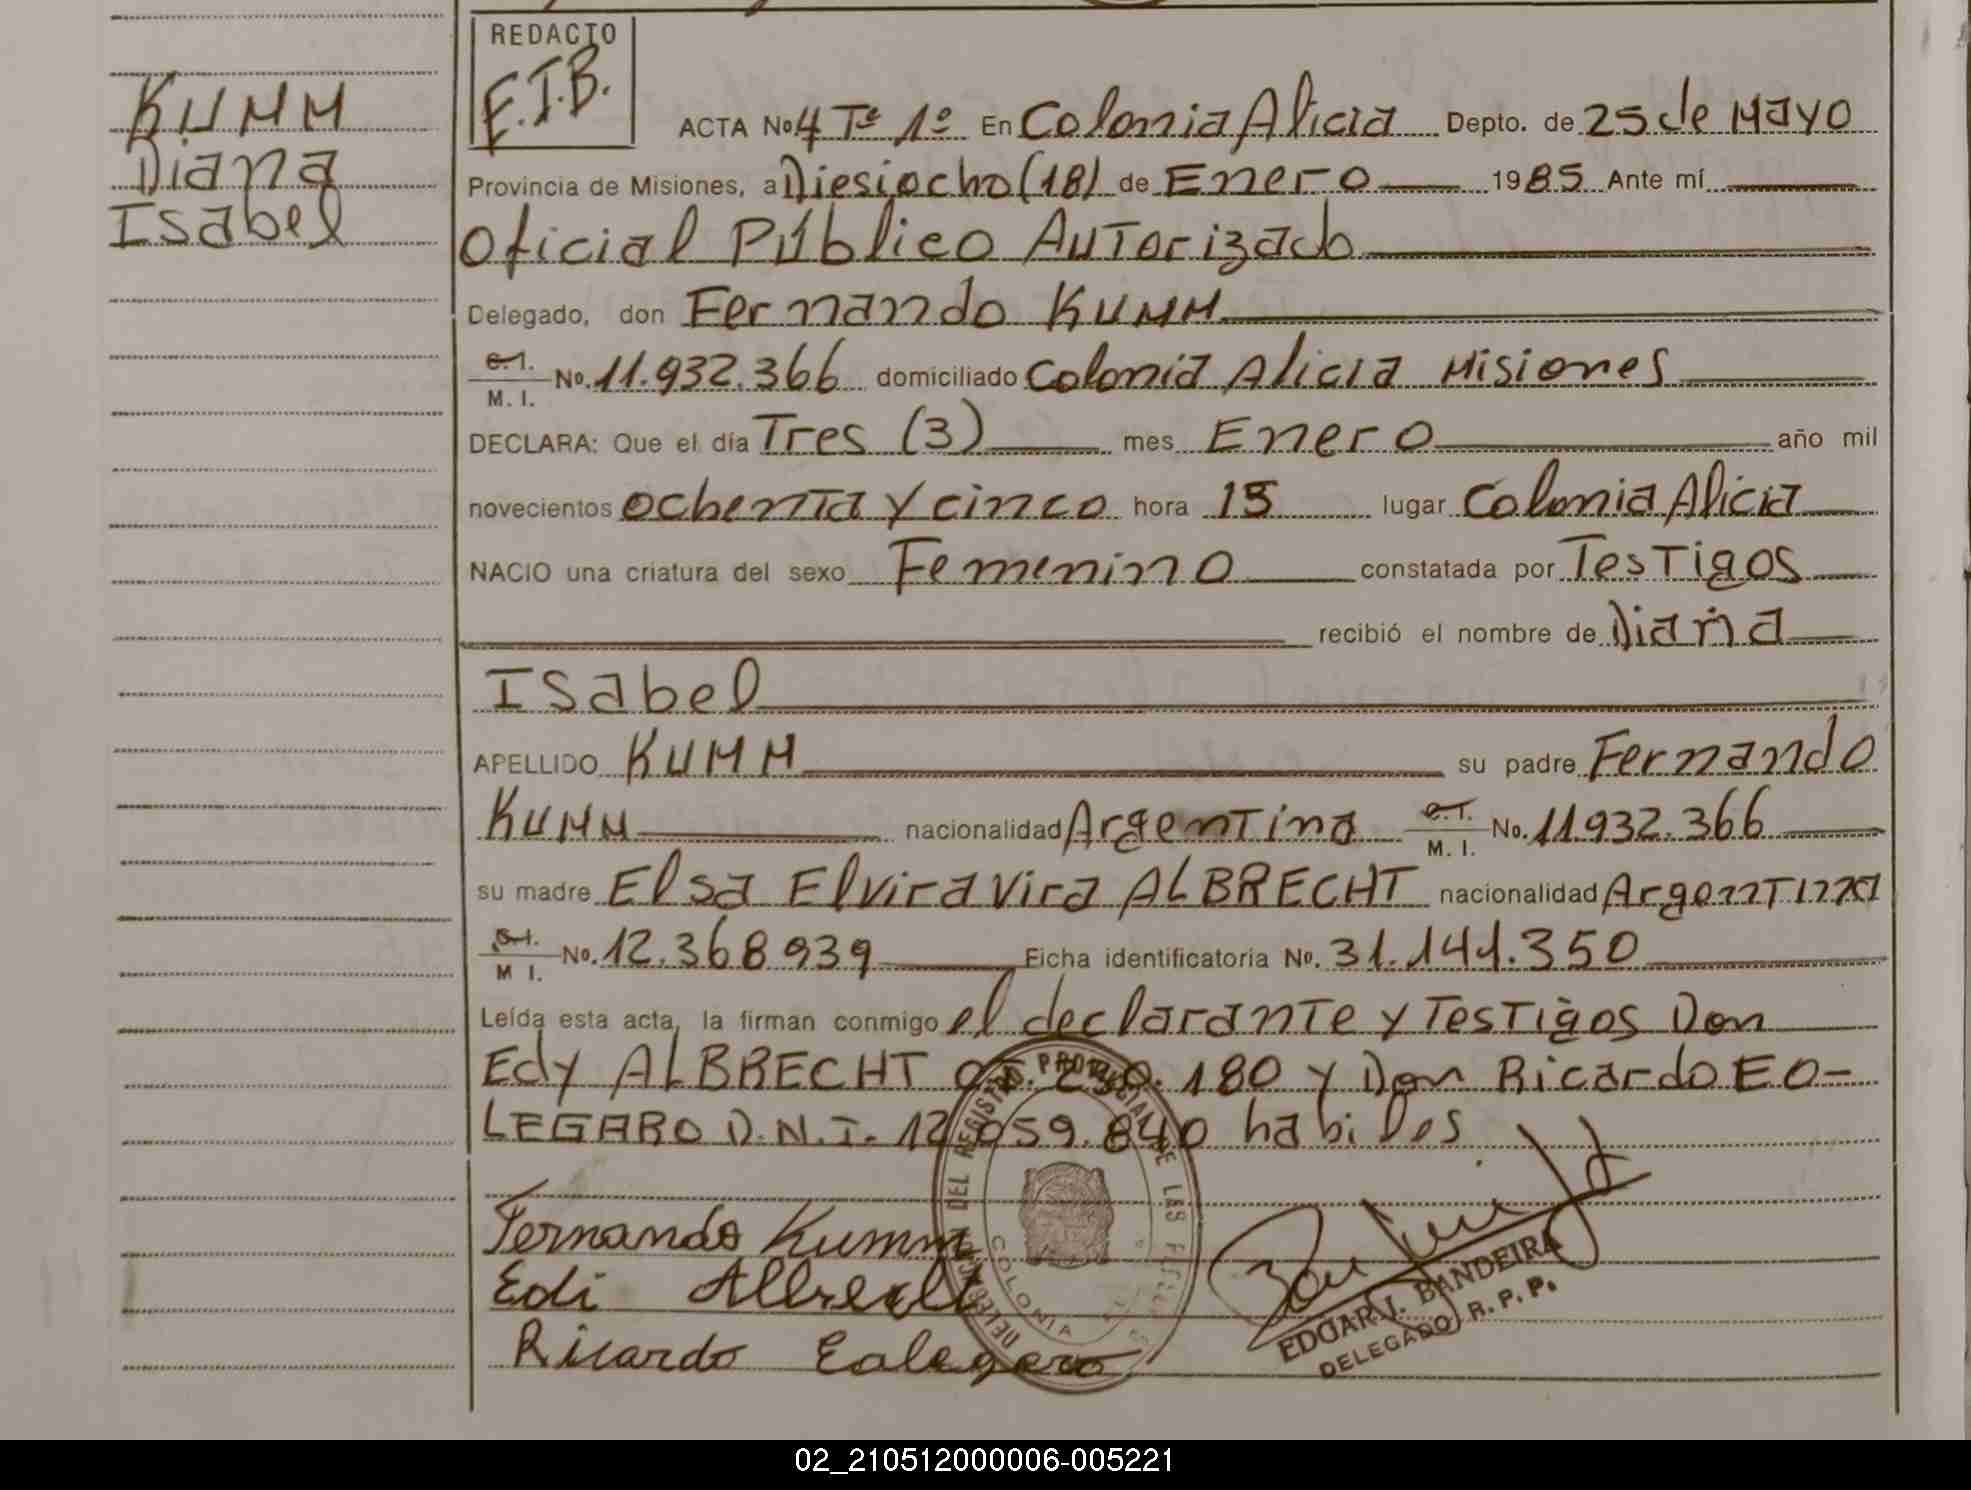 KUMM
Diana
Isabel
REDACTO
E.I.B.
ACTA No 4 Tº 1º En Colonia Alicia Depto. de 25 de Mayo
Provincia de Misiones, a Diesiocho (18) de Enero 1985 Ante mí
Oficial Público Autorizado
Delegado, don Fernando KUMM
C.I. M. I. No. 11.932.366 domiciliado Colonia Alicia Misiones
DECLARA: Que el día Tres (3) mes Enero año mil
novecientos ochenta y cinco hora 15 lugar Colonia Alicia
NACIO una criatura del sexo Femenino constatada por Testigos
recibió el nombre de Diana
Isabel
APELLIDO KUMM su padre Fernando
KUMM nacionalidad Argentina C.I. M. I. No. 11.932.366
su madre Elsa Elvira Vira ALBRECHT nacionalidad Argentina
C.I. M I. No. 12.368.939 Ficha identificatoria No. 31.141.350
Leída esta acta, la firman conmigo el declarante y Testigos Don
Edy ALBRECHT 180 y Don Ricardo EO-
LEGARO D.N.I. 12.059.840 habiles
Fernando Kumm
Edi Albrecht
Ricardo Ealegaro
DELEGACION DEL REGISTRO PROVINCIAL DE LAS
COLONIA
EDGAR I. BANDEIRA
DELEGADO R. P. P.
02_210512000006-005221